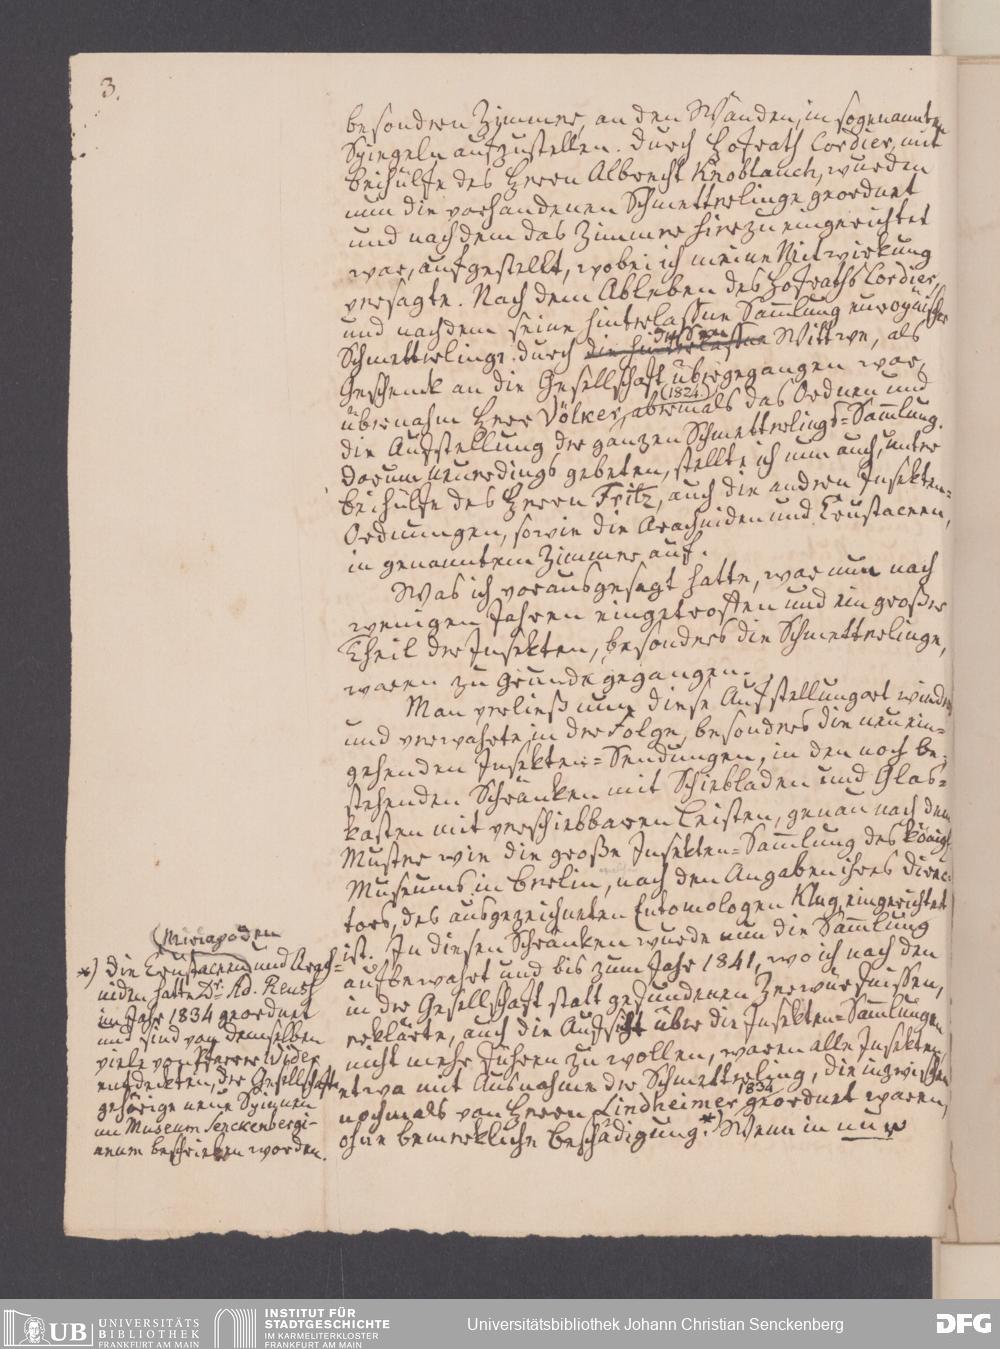 3.
besondern Zimmer, an den Wänden, in sogenannten
Spiegeln aufzustellen. Durch Hofrath Cordier, mit
Beihülfe des Herrn Albrecht Knoblauch, wurden
nun die vorhandenen Schmetterlinge geordnet
und nachdem das Zimmer hierzu eingerichtet
war, aufgestellt, wobei ich meine Mitwirkung
versagte. Nach dem Ableben des Hofraths Cordier,
und nachdem seine hinterlaßne Sammlung europäischer
Schmetterlinge durch die hinterlaßne dessen Wittwe, als
Geschenk an die Gesellschaft übergegangen war,
übernahm Herr Völker, (1824) abermals das Ordnen und
die Aufstellung der ganzen Schmetterlings=Sammlung.
Darum neuerdings gebeten, stellte ich nun auch, unter
Beihülfe des Herrn Fritz, auch die andern Insekten=
Ordnungen, sowie die Arachniden und Crustaceen,
in genanntem Zimmer auf.
Was ich vorausgesagt hatte, war nun nach
wenigen Jahren eingetroffen und ein großer
Theil der Insekten, besonders die Schmetterlinge,
waren zu Grunde gegangen.
Man verließ nun diese Aufstellungsart wieder
und verwahrte in der Folge, besonders die neu ein=
gehenden Insekten=Sendungen, in den noch be=
stehenden Schränken mit Schiebladen und Glas=
kasten mit verschiebbaren Leisten, genau nach dem
Muster wie die große Insekten=Sammlung des königl.
Museums in Berlin, nach den Angaben ihres Direc=
tors, des ausgezeichneten Entomologen Klug, eingerichtet
ist. In diesen Schränken wurde nun die Sammlung
aufbewahrt und bis zum Jahr 1841, wo ich nach den
in der Gesellschaft statt gefundenen Zerwürfnissen,
erklärte, auch die Aufsicht über die Insekten=Sammlungen
nicht mehr führen zu wollen, waren alle Insekten,
etwa mit Ausnahme der Schmetterling, die inzwischen
nochmals von Herrn Lindheimer 1834 geordnet waren,
ohne bemerkliche Beschädigung.*) Wenn in nur
(Miriapoden
*) Die Crustaceen und Arach=
niden hatte Dr. Ad. Reuß
im Jahr 1834 geordnet
und sind von demselben
viele von Pfarrer Wider
entdeckten, der Gesellschaft
gehörige neue Spinnen
im Museum Senckenbergi-
anum beschrieben worden.
UB UNIVERSITÄTS
BIBLIOTHEK
FRANKFURT AM MAIN
INSTITUT FÜR
STADTGESCHICHTE
IM KARMELITERKLOSTER
FRANKFURT AM MAIN
Universitätsbibliothek Johann Christian Senckenberg
DFG